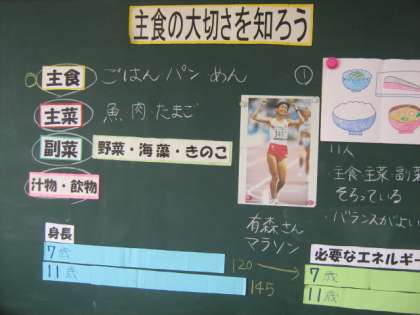 主食の大切さを知ろう
主食 ごはん パン めん
主菜 魚 肉 たまご
副菜 野菜・海藻・きのこ
汁物・飲物
①
・主食 主菜 副菜
そろっている
・バランスがよい
有森さん
マラソン
身長
7歳 120
11歳 145
必要なエネルギー
7歳
11歳